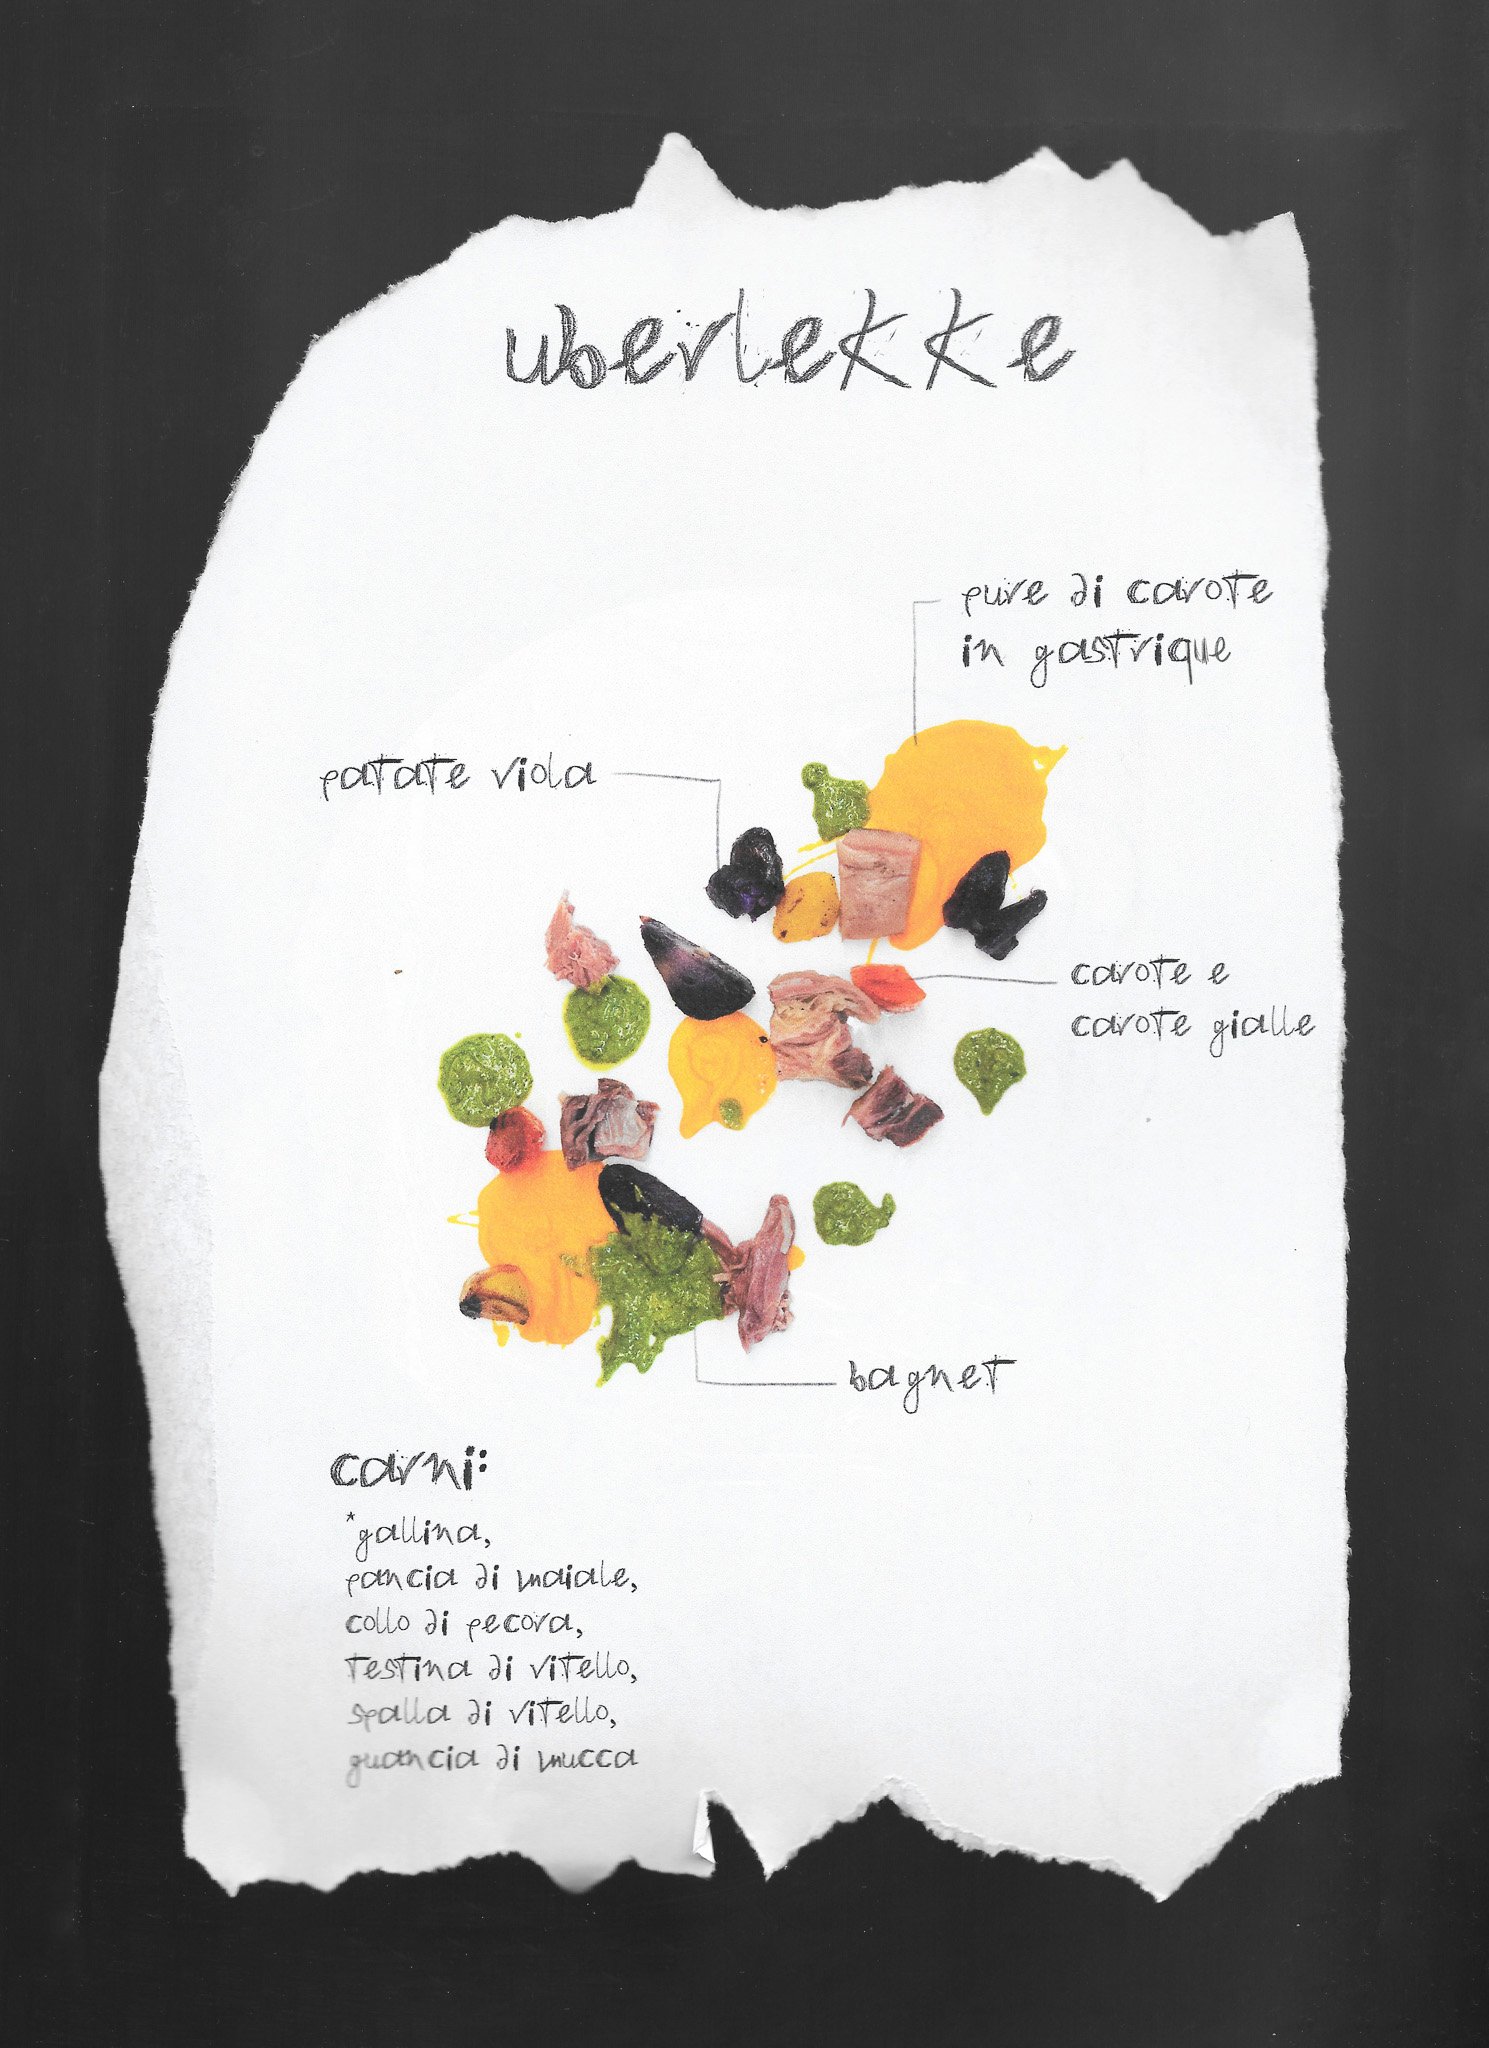 uberlekke
pure di carote
in gastrique
patate viola
carote e
carote gialle
bagnet
carni:
*gallina,
pancia di maiale,
collo di pecora,
testina di vitello,
spalla di vitello,
guancia di mucca